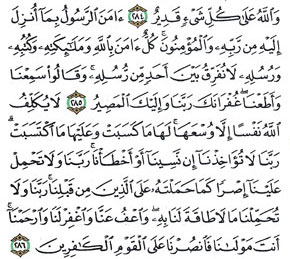 وَاللَّهُ عَلَىٰ كُلِّ شَيْءٍ قَدِيرٌ ﴿٢٨٤﴾ ءَامَنَ الرَّسُولُ بِمَا أُنزِلَ
إِلَيْهِ مِن رَّبِّهِ وَالْمُؤْمِنُونَ ۚ كُلٌّ ءَامَنَ بِاللَّهِ وَمَلَٰئِكَتِهِ وَكُتُبِهِ
وَرُسُلِهِ لَا نُفَرِّقُ بَيْنَ أَحَدٍ مِّن رُّسُلِهِ ۚ وَقَالُوا سَمِعْنَا
وَأَطَعْنَا ۖ غُفْرَانَكَ رَبَّنَا وَإِلَيْكَ الْمَصِيرُ ﴿٢٨٥﴾ لَا يُكَلِّفُ
اللَّهُ نَفْسًا إِلَّا وُسْعَهَا ۚ لَهَا مَا كَسَبَتْ وَعَلَيْهَا مَا اكْتَسَبَتْ ۗ
رَبَّنَا لَا تُؤَاخِذْنَا إِن نَّسِينَا أَوْ أَخْطَأْنَا ۚ رَبَّنَا وَلَا تَحْمِلْ
عَلَيْنَا إِصْرًا كَمَا حَمَلْتَهُ عَلَى الَّذِينَ مِن قَبْلِنَا ۚ رَبَّنَا وَلَا
تُحَمِّلْنَا مَا لَا طَاقَةَ لَنَا بِهِ ۖ وَاعْفُ عَنَّا وَاغْفِرْ لَنَا وَارْحَمْنَا ۚ
أَنتَ مَوْلَىٰنَا فَانصُرْنَا عَلَى الْقَوْمِ الْكَٰفِرِينَ ﴿٢٨٦﴾